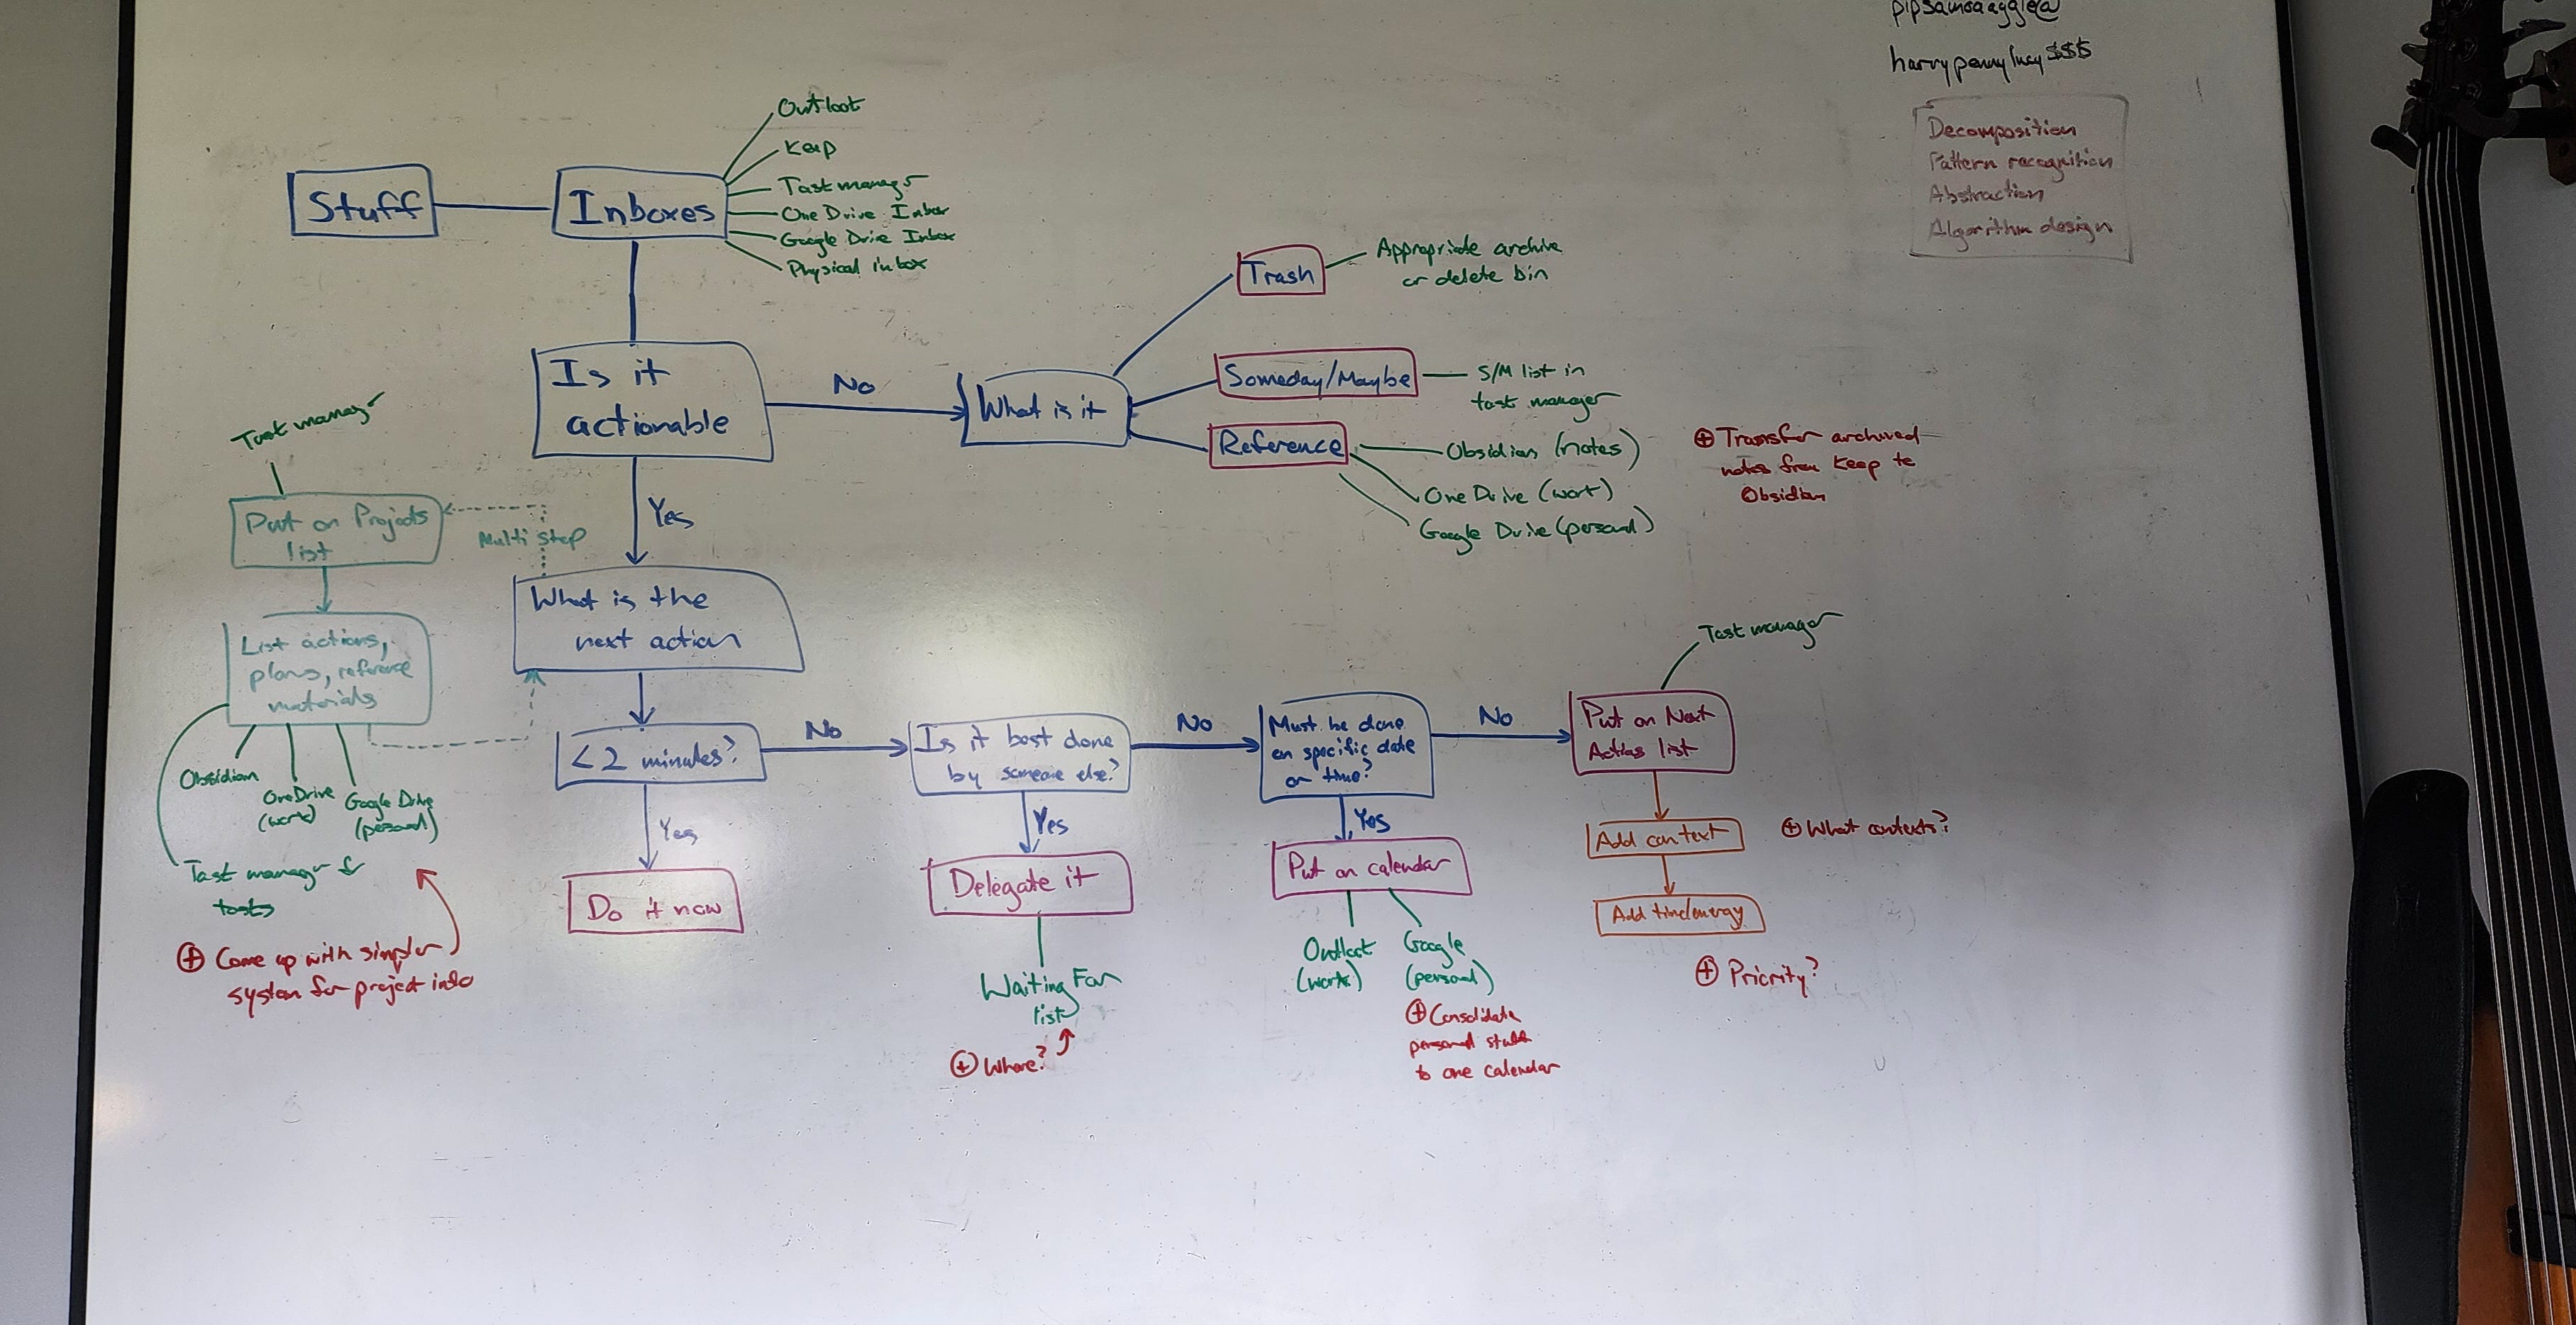 harrypennylucy$$$
Decomposition
Pattern recognition
Abstraction
Algorithm design
Stuff
Inboxes
Outlook
Keep
Task manager
One Drive Inbox
Google Drive Inbox
Physical inbox
Is it
actionable
No
What is it
Trash
Appropriate archive
or delete bin
Someday/Maybe
S/M list in
task manager
Reference
Obsidian (notes)
One Drive (work)
Google Drive (personal)
⊕ Transfer archived
notes from Keep to
Obsidian
Yes
Task manager
Put on Projects
list
Multi step
List actions,
plans, reference
materials
Obsidian
OneDrive
(work)
Google Drive
(personal)
Task manager for
tasks
⊕ Come up with simpler
system for project info
What is the
next action
< 2 minutes?
Yes
Do it now
No
Is it best done
by someone else?
Yes
Delegate it
Waiting For
list
⊕ Where?
No
Must be done
on specific date
or time?
Yes
Put on calendar
Outlook
(work)
Google
(personal)
⊕ Consolidate
personal stuff
to one calendar
No
Task manager
Put on Next
Actions list
Add context
⊕ What contexts?
Add time/energy
⊕ Priority?